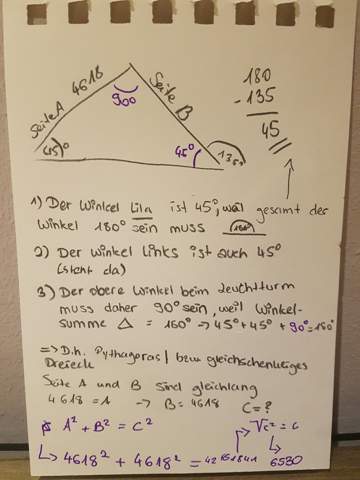 180
- 135
45
Seite A 4618
Seite B
90°
45°
45°
135°
1) Der Winkel Lila ist 45°, weil gesamt der
Winkel 180° sein muss 180°
2) Der Winkel links ist auch 45°
(steht da)
3) Der obere Winkel beim Leuchtturm
muss daher 90° sein, weil Winkel-
summe △ = 180° → 45° + 45° + 90° = 180°
=> D.h. Pythagoras / bzw gleichschenkeliges
Dreieck
Seite A und B sind gleichlang
4618 = A → B = 4618 C = ?
A² + B² = C² √C² = C
↳ 4618² + 4618² = 42651841 6530